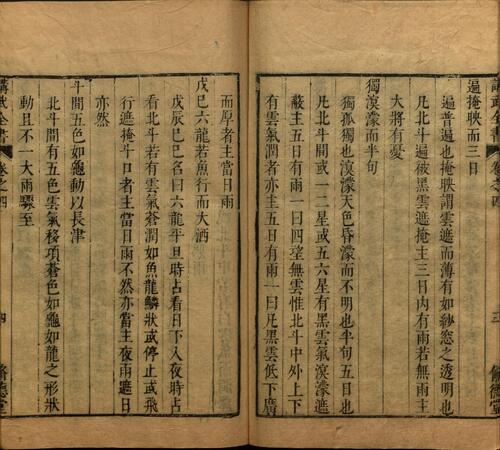 遍掩映而三日
遍普遍也掩映謂雲遮而薄有如紗窓之透明也
凡北斗遍被黑雲遮掩主三日內有雨若無雨主
大將有憂
獨溟濛而半旬
獨孤獨也溟濛天色昏濛而不明也半旬五日也
凡北斗間或一二星或五六星有黑雲氣溟濛遮
蔽主五日有雨一曰四望無雲惟北斗中外上下
有雲氣潤者亦主五日有雨一曰凡黑雲低下廣
而原者主當日雨
戊巳六龍若魚行而大洒
戊辰巳巳名曰六龍平旦時占看日下入夜時占
看北斗若有雲氣蒼潤如魚龍鱗狀或停止或飛
行遮掩斗口者主當日雨不然亦當主夜雨遮日
亦然
斗間五色如龜動以長津
北斗間有五色雲氣移項蒼色如龜如龍之形狀
動且不一大雨驟至
講武全書
卷之四
四